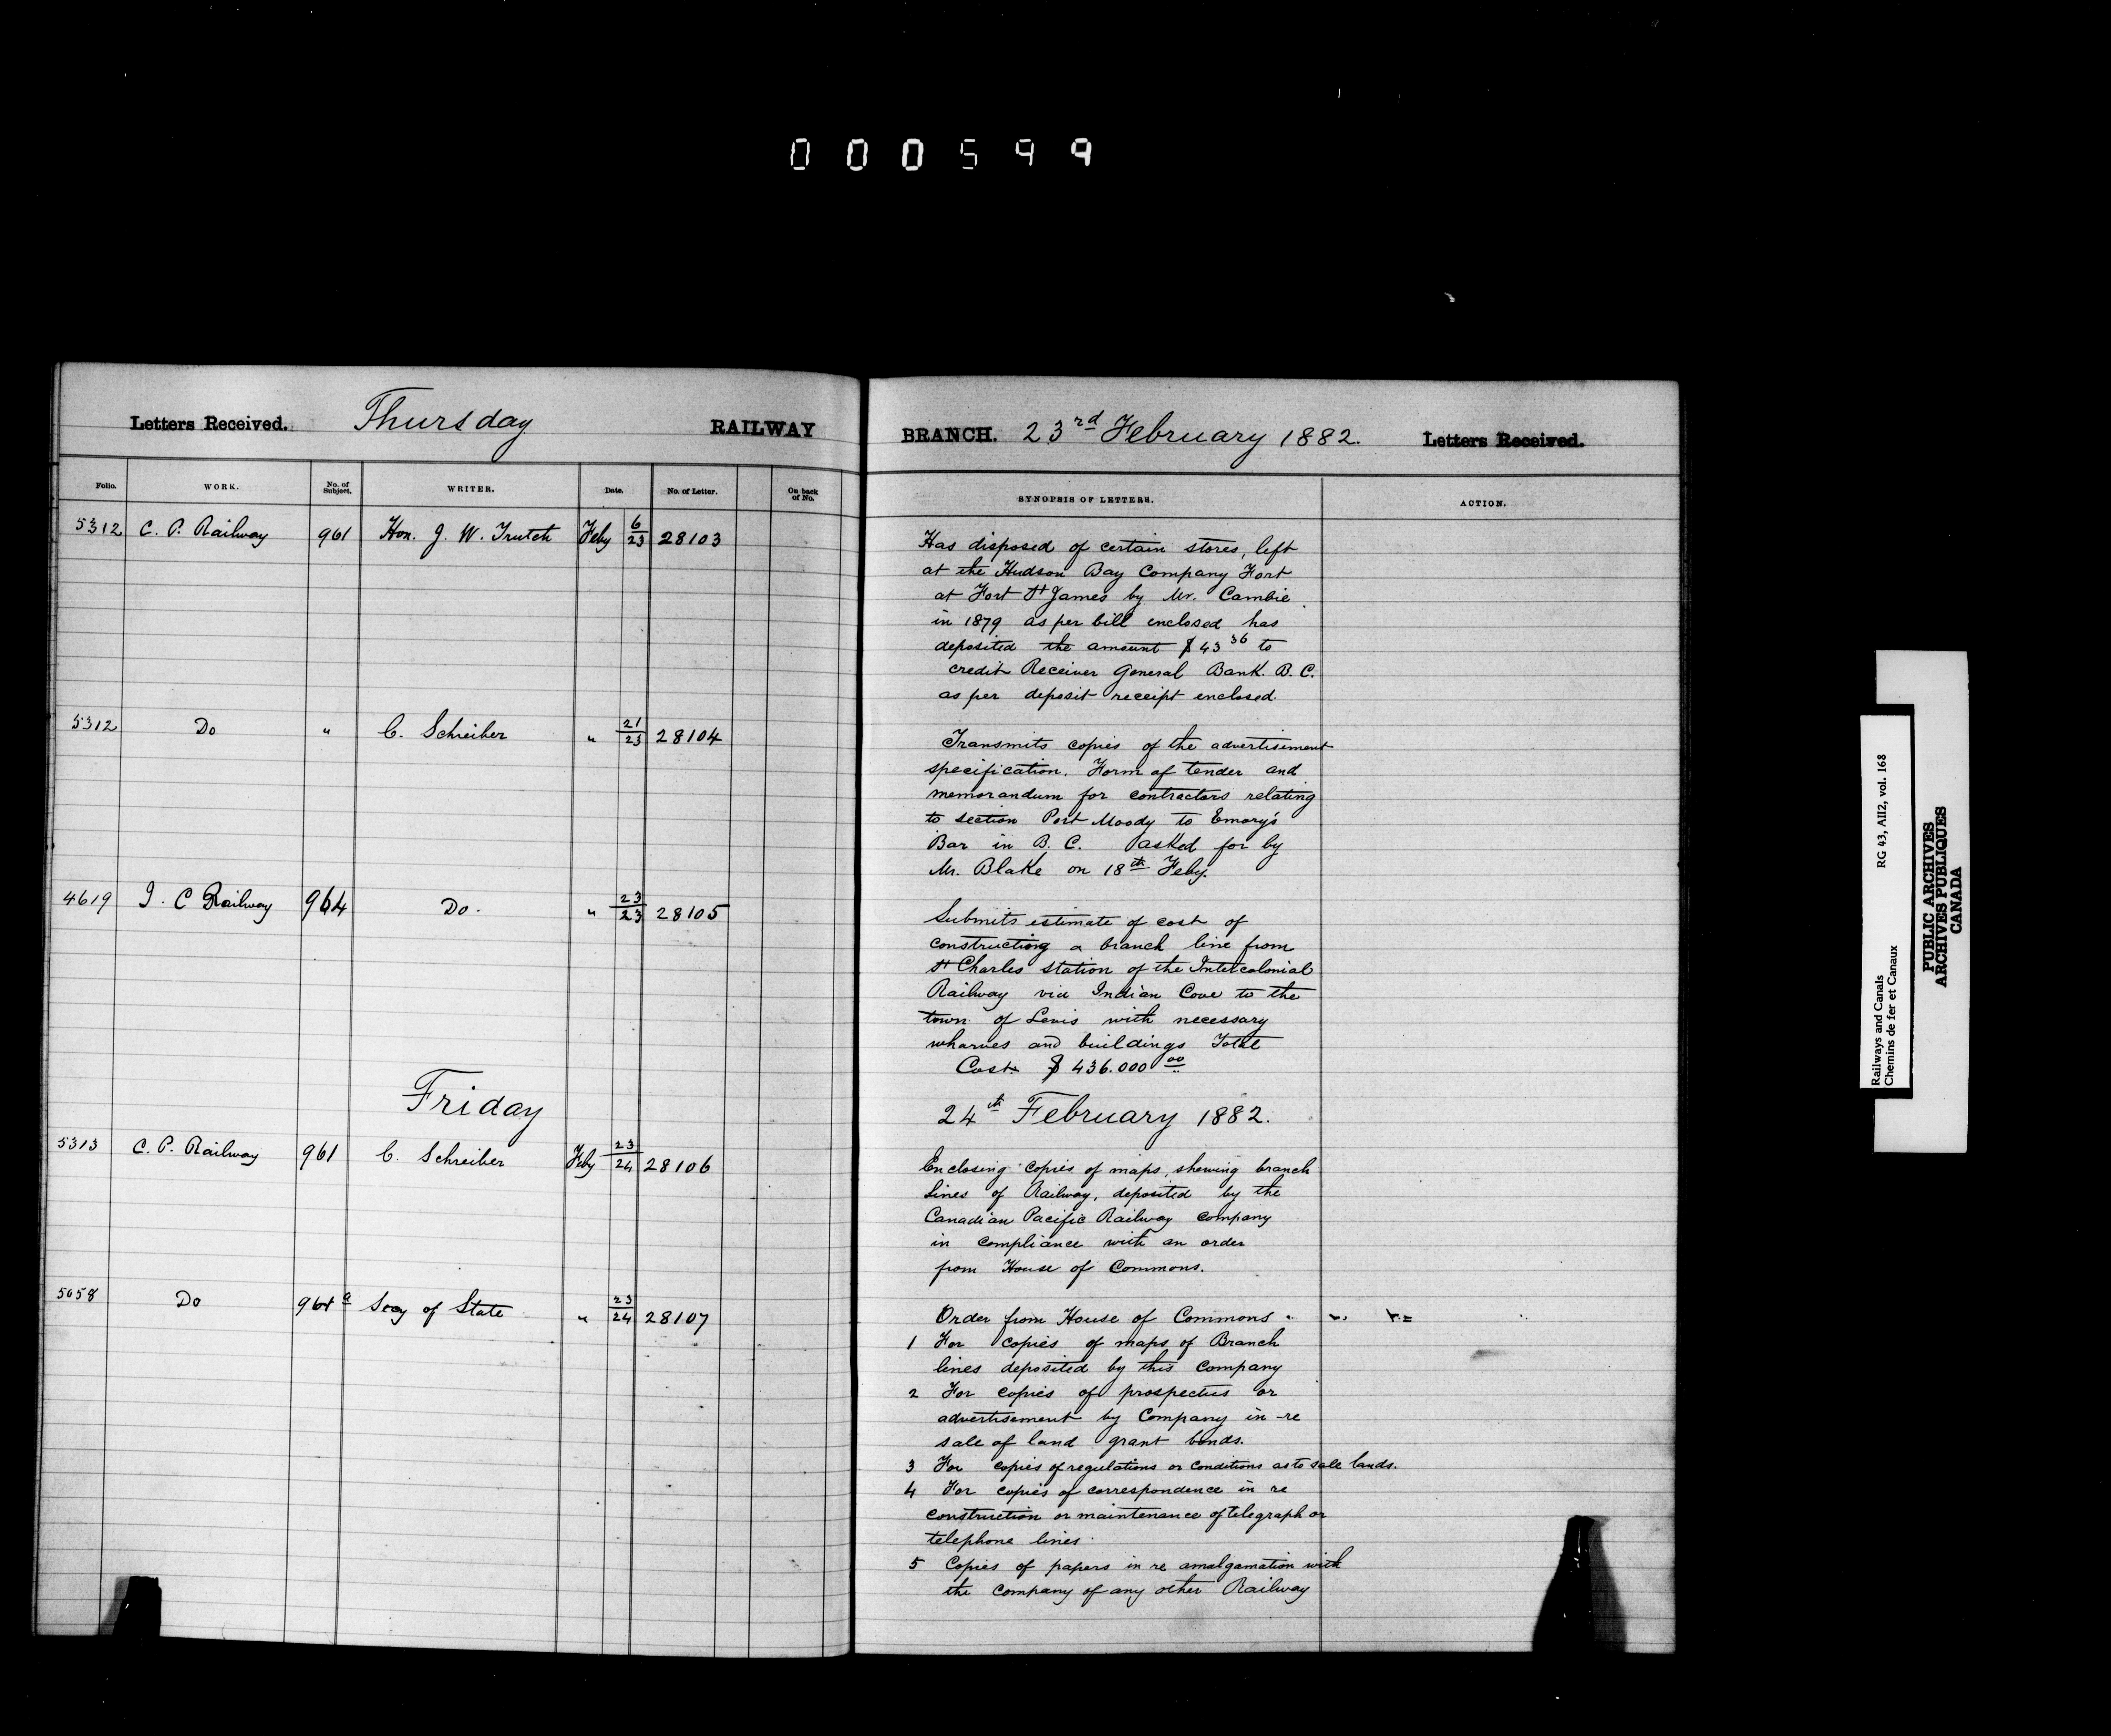 000599
Letters Received. Thursday RAILWAY BRANCH. 23rd February 1882. Letters Received.
Folio. WORK. No. of Subject. WRITER. Date. No. of Letter. On back of No. SYNOPSIS OF LETTERS. ACTION.
5312 C. P. Railway 961 Hon. J. W. Trutch Feby 6/23 28103
Has disposed of certain stores, left
at the Hudson Bay Company Fort
at Fort St James by Mr. Cambie
in 1879 as per bill enclosed has
deposited the amount $43 36 to
credit Receiver General Bank. B. C.
as per deposit receipt enclosed.
5312 Do " C. Schreiber " 21/23 28104
Transmits copies of the advertisement
specification. Form of tender and
memorandum for contractors relating
to section Port Moody to Emory's
Bar in B. C. asked for by
Mr. Blake on 18th Feby.
4619 I. C Railway 964 Do. " 23/23 28105
Submits estimate of cost of
constructiong a branch line from
St Charles station of the Intercolonial
Railway via Indian Cove to the
town of Levis with necessary
wharves and buildings Total
Cost $436.000 00
Friday 24th February 1882.
5313 C. P. Railway 961 C. Schreiber Feby 23/24 28106
Enclosing copies of maps, shewing branch
Lines of Railway, deposited by the
Canadian Pacific Railway company
in compliance with an order
from House of Commons.
5058 Do 961a Secy of State " 23/24 28107
Order from House of Commons
1 For copies of maps of Branch
lines deposited by this Company
2 For copies of prospectus or
advertisement by Company in re
sale of land grant bonds.
3 For copies of regulations or Conditions as to sale lands.
4 For copies of correspondence in re
construction or maintenance of telegraph or
telephone lines
5 Copies of papers in re amalgamation with
the Company of any other Railway
Railways and Canals RG 43, AII2, vol. 168
Chemins de fer et Canaux
PUBLIC ARCHIVES
ARCHIVES PUBLIQUES
CANADA